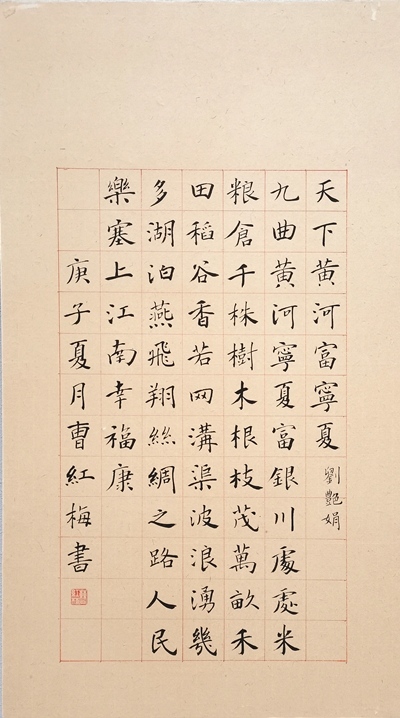 天下黄河富寧夏
劉艷娟
九曲黄河寧夏富銀川處處米
粮倉千株樹木根枝茂萬畝禾
田稻谷香若网溝渠波浪湧幾
多湖泊燕飛翔絲綢之路人民
樂塞上江南幸福康
庚子夏月曹紅梅書